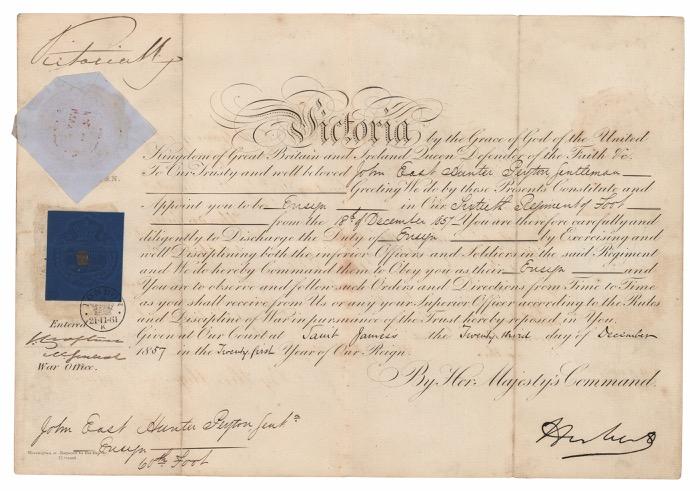 Victoria R
Victoria by the Grace of God of the United
Kingdom of Great Britain and Ireland Queen Defender of the Faith &c.
To Our Trusty and well beloved John East Hunter Peyton Gentleman
Greeting We do by these Presents Constitute and
Appoint you to be Ensign in Our Sixtieth Regiment of Foot
from the 18th of December 1857 You are therefore carefully and
diligently to Discharge the Duty of Ensign by Exercising and
well Disciplining both the inferior Officers and Soldiers in the said Regiment
and We do hereby Command them to Obey you as their Ensign and
You are to observe and follow such Orders and Directions from Time to Time
as you shall receive from Us or any your Superior Officer according to the Rules
and Discipline of War in pursuance of the Trust hereby reposed in You.
Given at Our Court at Saint James's the Twenty third day of December
1857 in the Twenty first Year of Our Reign.
By Her Majesty's Command.
21·11·61
K
Entered
War Office.
John East Hunter Peyton Gentn
Ensign
60th Foot